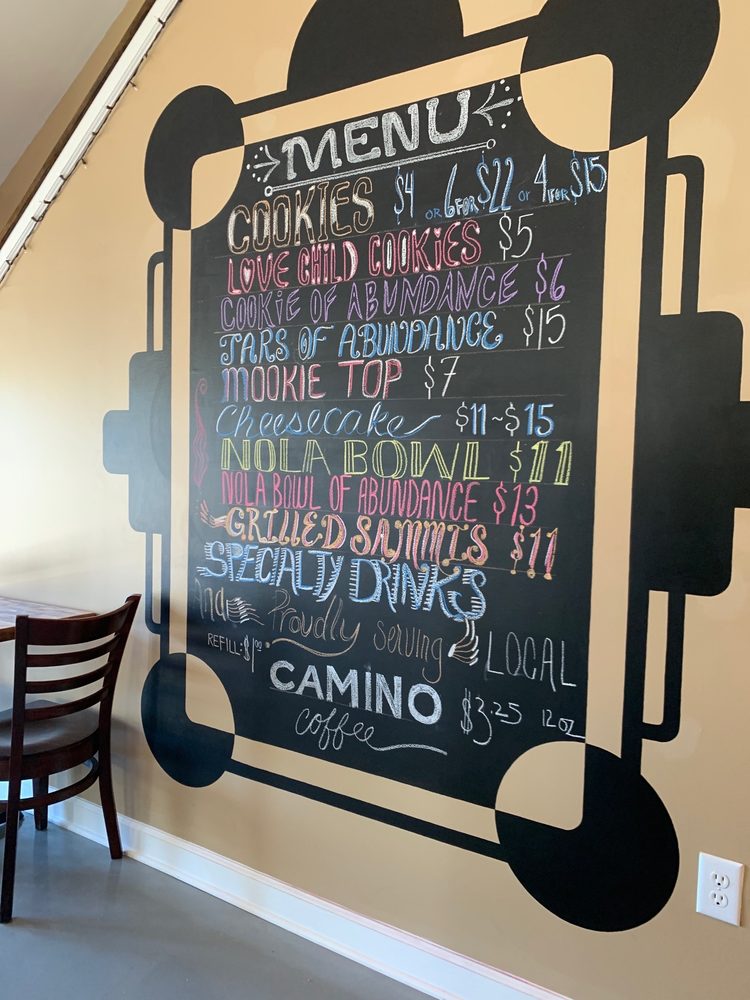 MENU
COOKIES $4 OR 6 FOR $22 OR 4 FOR $15
LOVE CHILD COOKIES $5
COOKIE OF ABUNDANCE $6
JARS OF ABUNDANCE $15
MOOKIE TOP $7
Cheesecake $11~$15
NOLA BOWL $11
NOLA BOWL OF ABUNDANCE $13
GRILLED SAMMIS $11
SPECIALTY DRINKS
And Proudly serving LOCAL
REFILL: $1.00
CAMINO $3.25 12oz
coffee